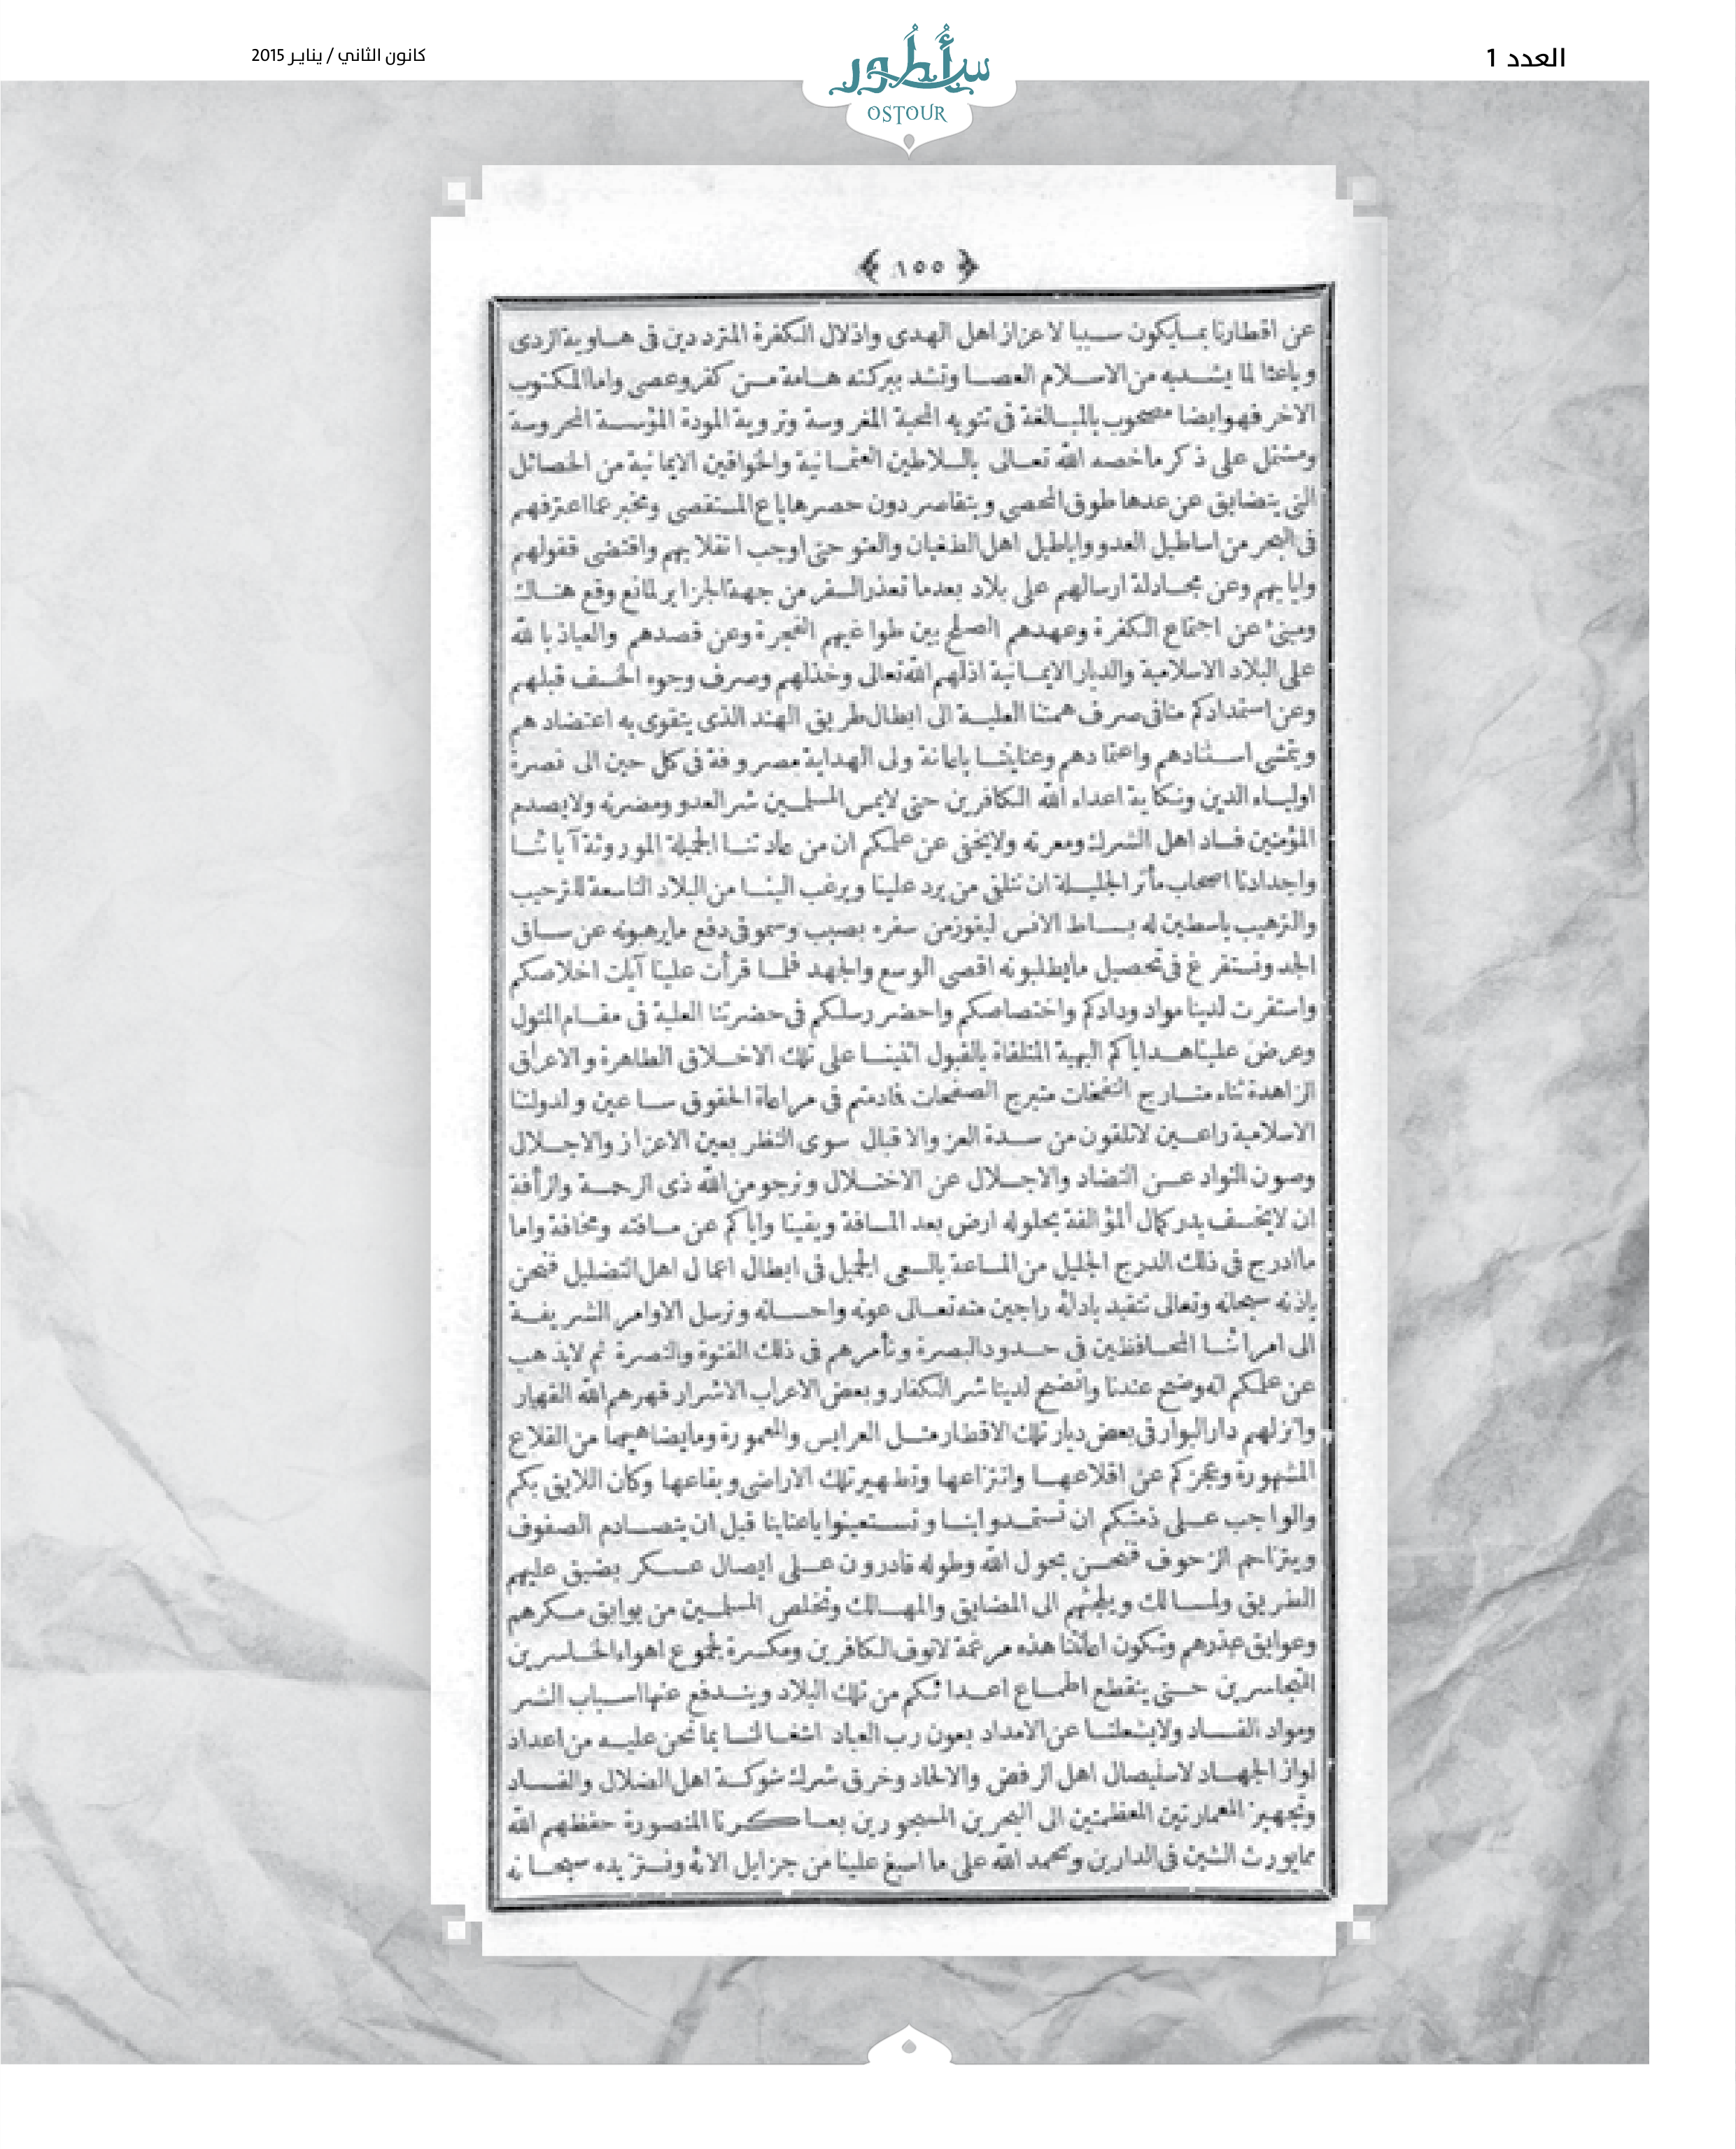 العدد 1
أسطور
OSTOUR
كانون الثاني / يناير 2015
١٥٥
عن اقطارنا بمايكون سببا لاعزاز اهل الهدى واذلال الكفرة المترددين فى هاوية الردى
وباعثا لما يشديه من الاسلام العصا وتشد ببركته هامة من كفر وعصى واما المكتوب
الاخر فهو ايضا مصحوب بالمبالغة فى تنويه المحبة المغروسة وتروية المودة المؤسسة المحروسة
ومشتمل على ذكر ماخصه الله تعالى بالسلاطين العثمانية والخواقين الايمانية من الخصائل
التى يتضايق عن عدها طوق المحصى ويتقاصر دون حصرها باع المستقصى ومخبر عما اعترفهم
فى البحر من اساطيل العدو واباطيل اهل الطغيان والعتو حتى اوجب انقلابهم واقتضى قفولهم
وايابهم وعن مجادلة ارسالهم على بلاد بعدما تعذر السفر من جهة الجزاير لمانع وقع هناك
ومبنئ عن اجتماع الكفرة وعهدهم الصلح بين طواغيهم الفجرة وعن قصدهم والعياذ بالله
على البلاد الاسلامية والديار الايمانية اذلهم الله تعالى وخذلهم وصرف وجوه الخسف قبلهم
وعن استمدادكم منا فى صرف همتنا العلية الى ابطال طريق الهند الذى يتقوى به اعتضادهم
ويتمشى استنادهم واعتمادهم وعنايتنا باعانة ولى الهداية مصروفة فى كل حين الى نصرة
اولياء الدين ونكاية اعداء الله الكافرين حتى لايمس المسلمين شر العدو ومضرته ولا يصدم
المؤمنين فساد اهل الشرك ومعرته ولايخفى عن علمكم ان من عادتنا الجميلة الموروثة آبائنا
واجدادنا اصحاب مأثر الجليلة ان نتلقى من يرد علينا ويرغب الينا من البلاد الشاسعة للترحيب
والترهيب باسطين له بساط الانس ليفوز من سفره بصيب وسمو فى دفع مايرهبونه عن ساق
الجد ونستفرغ فى تحصيل مايطلبونه اقصى الوسع والجهد فلما قرأت علينا آيات اخلاصكم
واستقرت لدينا مواد ودادكم واختصاصكم واحضر رسلكم فى حضرتنا العلية فى مقام المثول
وعرض علينا هداياكم البهية المتلقاة بالقبول اثنينا على تلك الاخلاق الطاهرة والاعراق
الزاهدة ثناء متارج النفحات متبرج الصفحات فادمتم فى مراعاة الحقوق ساعين ولدولتنا
الاسلامية راعين لاتلقون من سدة العز والاقبال سوى النظر بعين الاعزاز والاجلال
وصون التواد عن التضاد والاجلال عن الاختلال ونرجو من الله ذى الرحمة والرأفة
ان لايخسف بدر كمال المؤالفة بحلوله ارض بعد المسافة ويقينا واياكم عن مسافته ومخافة واما
ما ادرج فى ذلك الدرج الجليل من المساعدة بالسعى الجميل فى ابطال اعمال اهل التضليل فنحن
باذنه سبحانه وتعالى نتقيد بادائه راجين منه تعالى عونه واحسانه ونرسل الاوامر الشريفة
الى امرائنا المحافظين فى حدود البصرة ونأمرهم فى ذلك الفتوة والنصرة ثم لايذهب
عن علمكم انه وضح عندنا واتضح لدينا شر الكفار وبعض الاعراب الاشرار قهرهم الله القهار
وانزلهم دار البوار فى بعض ديار تلك الاقطار مثل العرايس والمعمورة ومايضاهيهما من القلاع
المشهورة وعجزكم عن اقلاعها وانتزاعها وتطهير تلك الاراضى وبقاعها وكان اللايق بكم
والواجب على ذمتكم ان تستمدوا بنا وتستعينوا باعتابنا قبل ان يتصادم الصفوف
ويتزاحم الزحوف فنحن بحول الله وطوله قادرون على ايصال عسكر يضيق عليهم
الطريق ولمسالك ويلجئهم الى المضايق والمهالك ونخلص المسلمين من بوايق مكرهم
وعوايق عذرهم وتكون اعانتنا هذه مرغمة لانوف الكافرين ومكسرة لجموع اهواء الخاسرين
المتجاسرين حتى ينقطع اطماع اعدائكم من تلك البلاد ويندفع عنها اسباب الشر
ومواد الفساد ولايشغلنا عن الامداد بعون رب العباد اشغالنا بما نحن عليه من اعداد
لواز الجهاد لاستيصال اهل الرفض والالحاد وخرق شرك شوكة اهل الضلال والفساد
وتجهيز العمارتين العظمتين الى البحرين المسجورين بعساكرنا المنصورة حفظهم الله
مما يورث الشين فى الدارين ونحمد الله على ما اسبغ علينا من جزايل الائه ونستزيده سبحانه